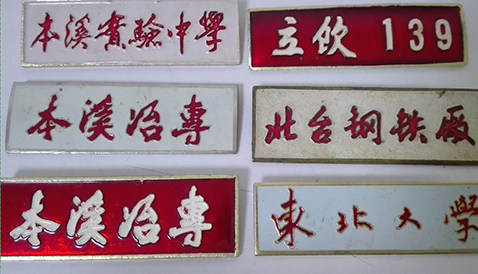 本溪實驗中學
立饮 139
本溪冶專
北台钢铁厰
本溪冶專
東北大學